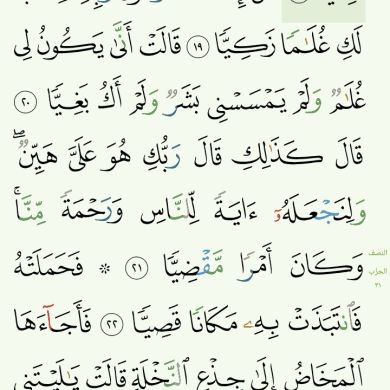 لَكِ غُلَـٰمًا زَكِيًّا ١٩ قَالَتْ أَنَّىٰ يَكُونُ لِى
غُلَـٰمٌ وَلَمْ يَمْسَسْنِى بَشَرٌ وَلَمْ أَكُ بَغِيًّا ٢٠
قَالَ كَذَٰلِكِ قَالَ رَبُّكِ هُوَ عَلَىَّ هَيِّنٌ ۖ
وَلِنَجْعَلَهُۥٓ ءَايَةً لِّلنَّاسِ وَرَحْمَةً مِّنَّا ۚ
وَكَانَ أَمْرًا مَّقْضِيًّا ٢١ ۞ فَحَمَلَتْهُ
النصف
الحزب
٣١
فَٱنتَبَذَتْ بِهِۦ مَكَانًا قَصِيًّا ٢٢ فَأَجَآءَهَا
ٱلْمَخَاضُ إِلَىٰ جِذْعِ ٱلنَّخْلَةِ قَالَتْ يَـٰلَيْتَنِى